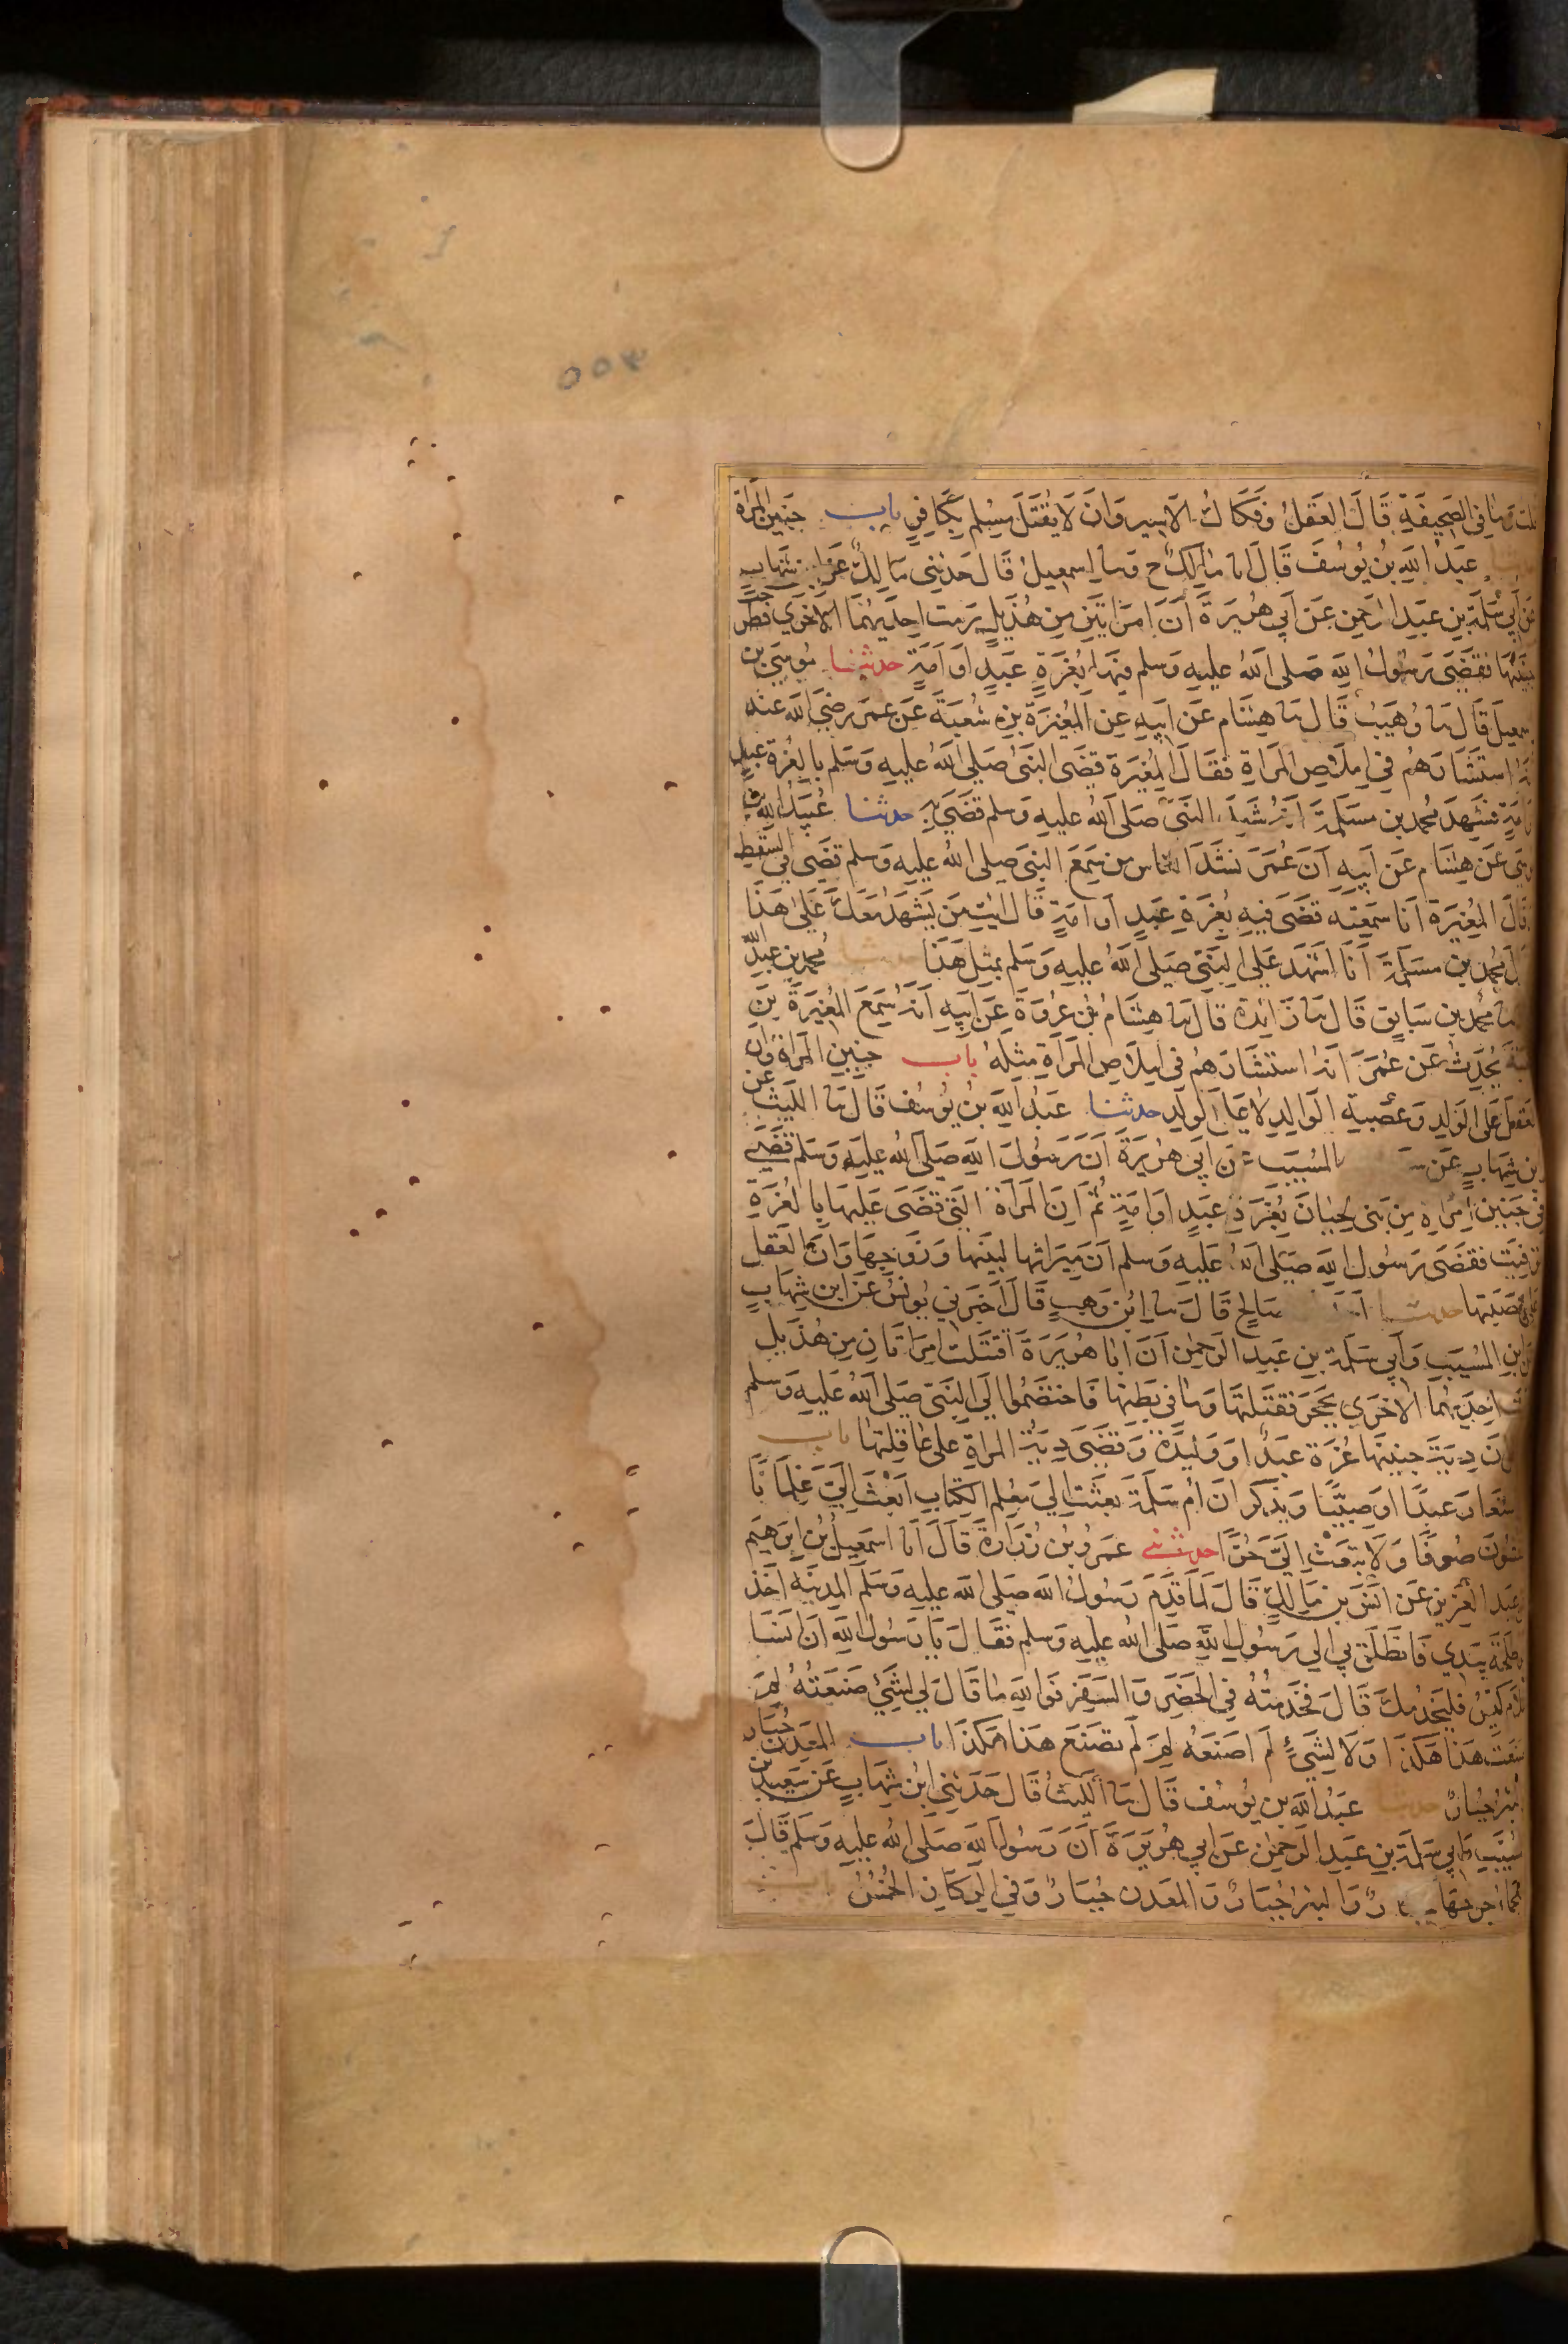 ٥٥٣
قلت وما في الصحيفة قال العقل وفكاك الاسير وان لا يقتل مسلم بكافر باب جنين المراة
عبد الله بن يوسف قال انا مالك ح وسا اسمعيل قال حدثني مالك عن ابن شهاب
عن ابي سلمة بن عبد الرحمن عن ابي هريرة ان امراتين من هذيل رمت احديهما الاخرى فطرحت
جنينها فقضى رسول الله صلى الله عليه وسلم فيها بغرة عبد او امة حدثنا موسى بن
اسمعيل قال سا وهيب قال سا هشام عن ابيه عن المغيرة بن شعبة عن عمر رضي الله عنه
انه استشارهم في املاص المراة فقال المغيرة قضى النبي صلى الله عليه وسلم بالغرة عبد
او امة فشهد محمد بن مسلمة انه شهد النبي صلى الله عليه وسلم قضى به حدثنا عبيد الله بن
موسى عن هشام عن ابيه ان عمر نشد الناس من سمع النبي صلى الله عليه وسلم قضى في السقط
وقال المغيرة انا سمعته قضى فيه بغرة عبد او امة قال ائت من يشهد معك على هذا
فقال محمد بن مسلمة انا اشهد على النبي صلى الله عليه وسلم بمثل هذا حدثنا محمد بن عبد الله
سا محمد بن سابق قال سا زائدة قال سا هشام بن عروة عن ابيه انه سمع المغيرة بن
شعبة يحدث عن عمر انه استشارهم في املاص المراة مثله باب جنين المراة وان
العقل على الوالد وعصبة الوالد لا على الولد حدثنا عبد الله بن يوسف قال سا الليث عن
ابن شهاب عن المسيب عن ابي هريرة ان رسول الله صلى الله عليه وسلم قضى
في جنين امراة من بني لحيان بغرة عبد او امة ثم ان المراة التي قضى عليها بالغرة
توفيت فقضى رسول الله صلى الله عليه وسلم ان ميراثها لبنيها وزوجها وان العقل
على عصبتها حدثنا صالح قال سا ابن وهب قال اخبرني يونس عن ابن شهاب
عن ابن المسيب وابي سلمة بن عبد الرحمن ان ابا هريرة اقتتلت امراتان من هذيل
فرمت احديهما الاخرى بحجر فقتلتها وما في بطنها فاختصموا الى النبي صلى الله عليه وسلم
ان دية جنينها غرة عبد او وليدة وقضى دية المراة على عاقلتها باب
استعار عبدا او صبيا ويذكر ان ام سلمة بعثت الى معلم الكتاب ابعث الي غلمانا
ينفشون صوفا ولا تبعث الي حرا حدثني عمرو بن زرارة قال انا اسمعيل بن ابرهيم
عن عبد العزيز عن انس بن مالك قال لما قدم رسول الله صلى الله عليه وسلم المدينة اخذ
ابو طلحة بيدي فانطلق بي الى رسول الله صلى الله عليه وسلم فقال يا رسول الله ان انسا
غلام كيس فليخدمك قال فخدمته في الحضر والسفر فوالله ما قال لي لشيء صنعته لم
صنعت هذا هكذا ولا لشيء لم اصنعه لم لم تصنع هذا هكذا باب المعدن جبار
والبئر جبار حدثنا عبد الله بن يوسف قال سا الليث قال حدثني ابن شهاب عن سعيد بن
المسيب وابي سلمة بن عبد الرحمن عن ابي هريرة ان رسول الله صلى الله عليه وسلم قال
العجماء جرحها جبار والبئر جبار والمعدن جبار وفي الركاز الخمس باب